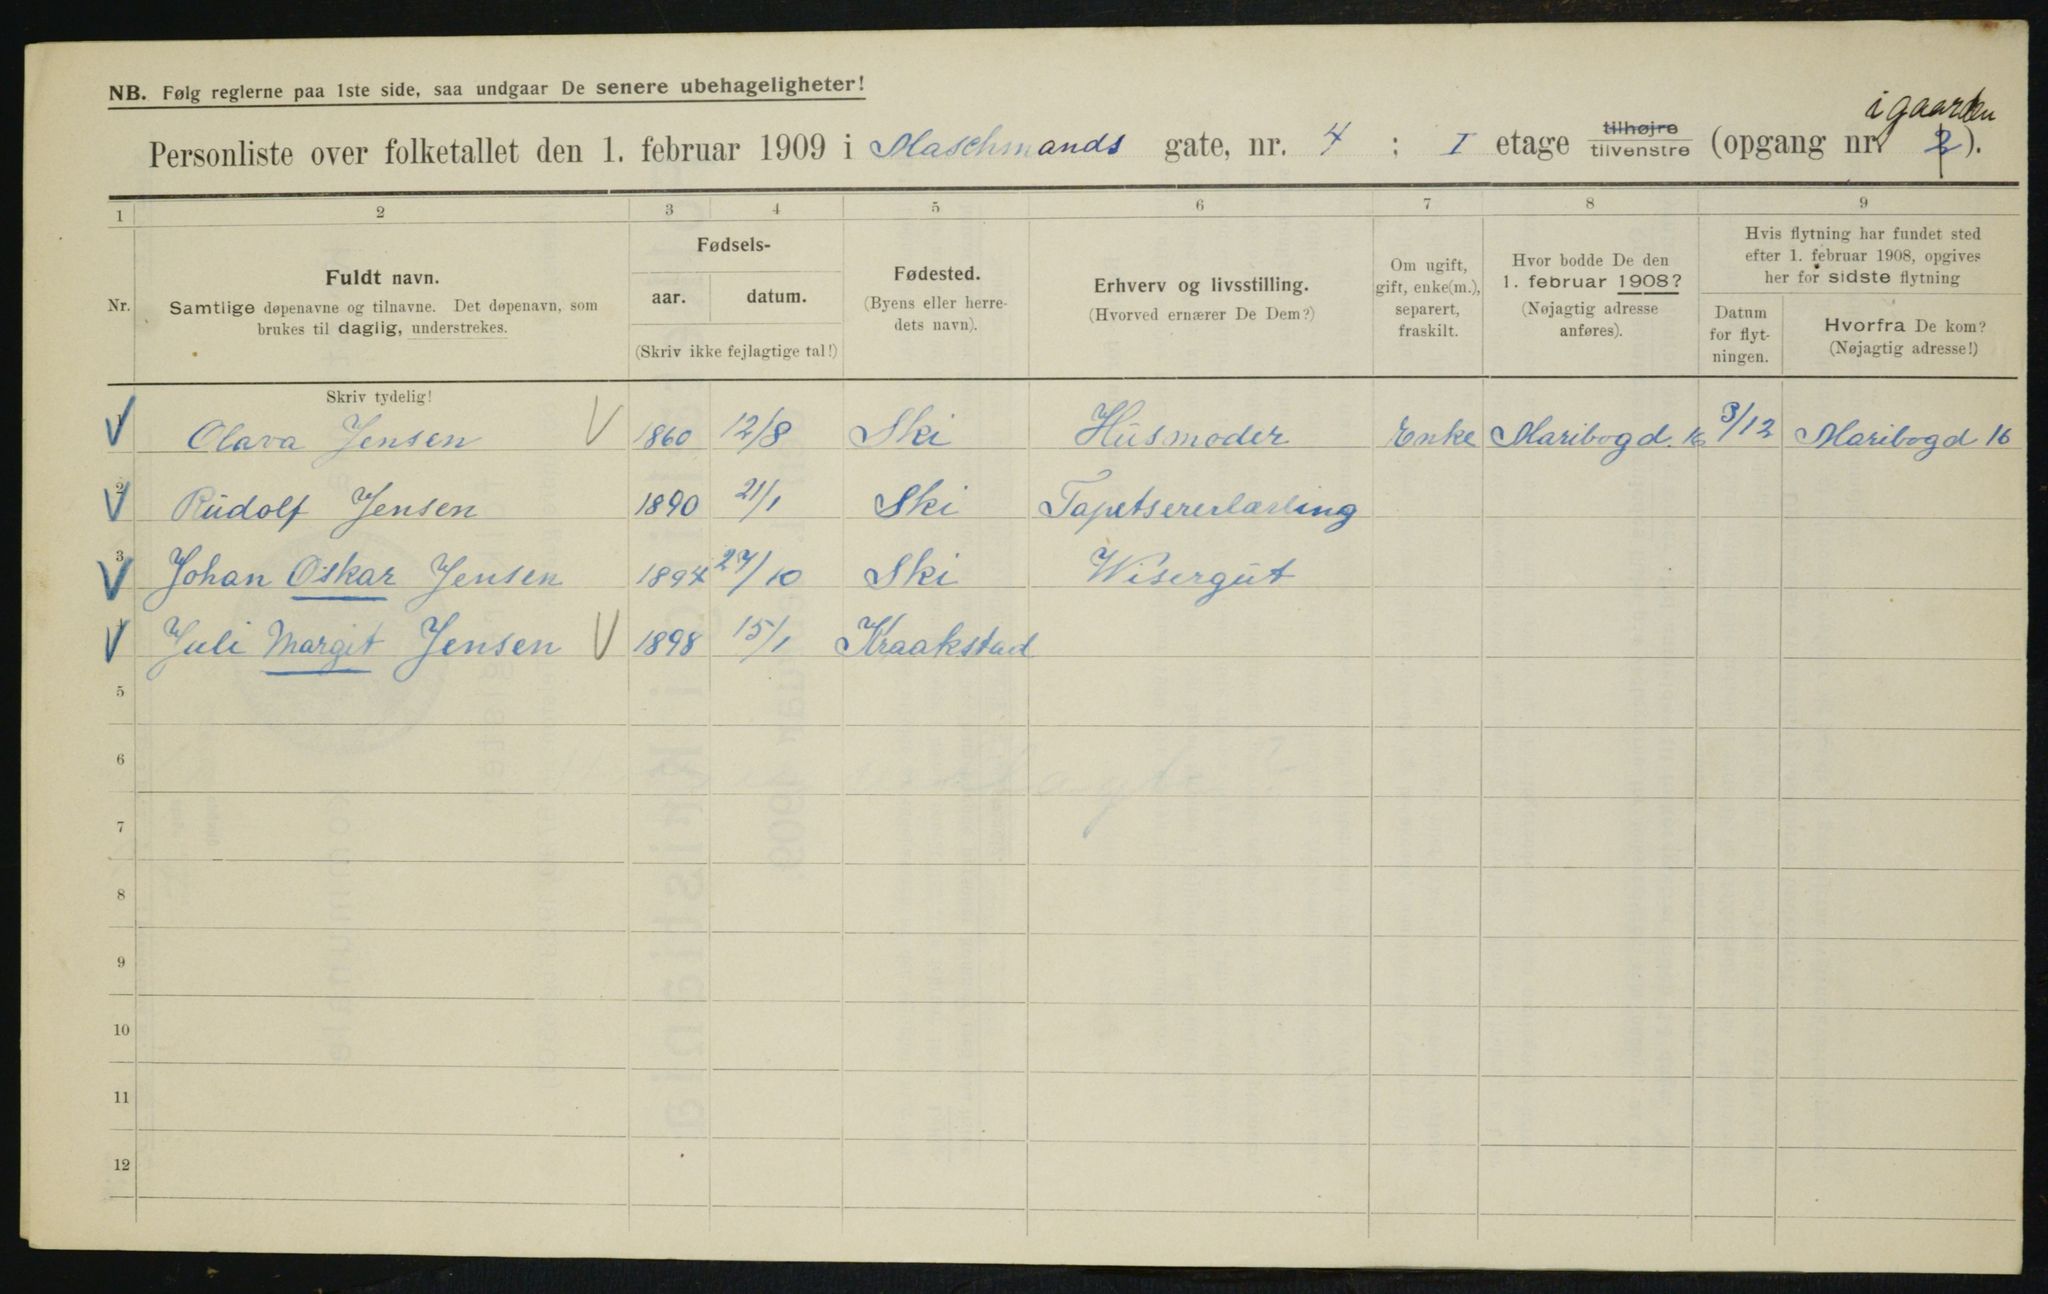 NB. Følg reglerne paa 1ste side, saa undgaar De senere ubehageligheter!
i gaarden
Personliste over folketallet den 1. februar 1909 i Maschmands gate, nr. 4 ; I etage tilhøjre tilvenstre (opgang nr. 2).
1 2 3 4 5 6 7 8 9
Nr.
Fuldt navn.
Samtlige døpenavne og tilnavne. Det døpenavn, som
brukes til daglig, understrekes.
Fødsels-
aar. datum.
(Skriv ikke fejlagtige tal!)
Fødested.
(Byens eller herre-
dets navn).
Erhverv og livsstilling.
(Hvorved ernærer De Dem?)
Om ugift,
gift, enke(m.),
separert,
fraskilt.
Hvor bodde De den
1. februar 1908?
(Nøjagtig adresse
anføres).
Hvis flytning har fundet sted
efter 1. februar 1908, opgives
her for sidste flytning
Datum
for flyt-
ningen.
Hvorfra De kom?
(Nøjagtig adresse!)
Skriv tydelig!
1 Olava Jensen 1860 12/8 Ski Husmoder Enke Maribogd. 16 3/12 Maribogd 16
2 Rudolf Jensen 1890 21/1 Ski Tapetsererlærling
3 Johan Oskar Jensen 1894 27/10 Ski Wisergut
4 Juli Margit Jensen 1898 15/1 Kraakstad
5
6
7
8
9
10
11
12